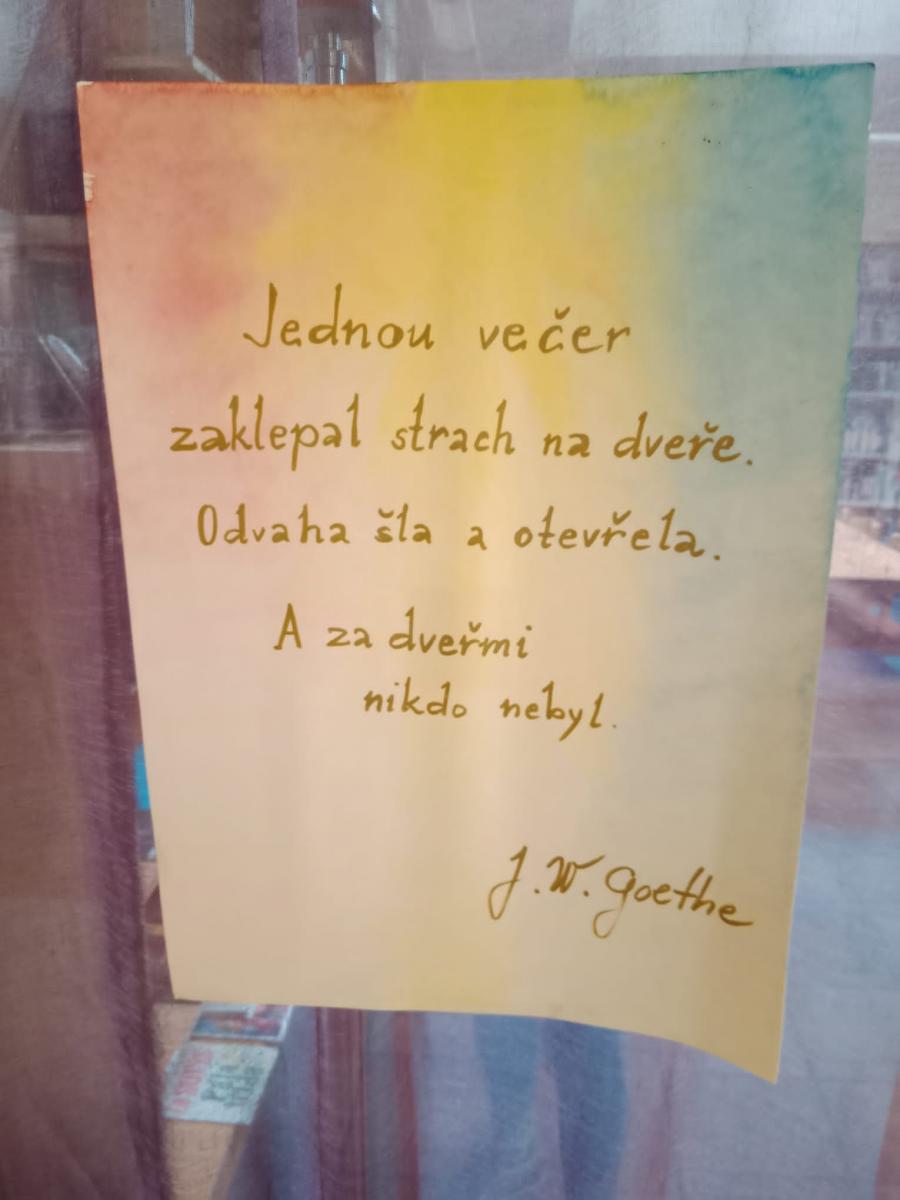 Jednou večer
zaklepal strach na dveře.
Odvaha šla a otevřela.
A za dveřmi
nikdo nebyl.
J. W. Goethe